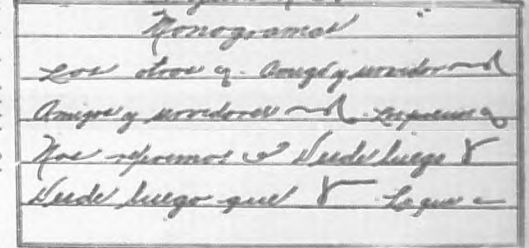 Monogramas
Los otros Amigo y servidor
Amigos y servidores
Nos referimos Desde luego
Desde luego que Lo que